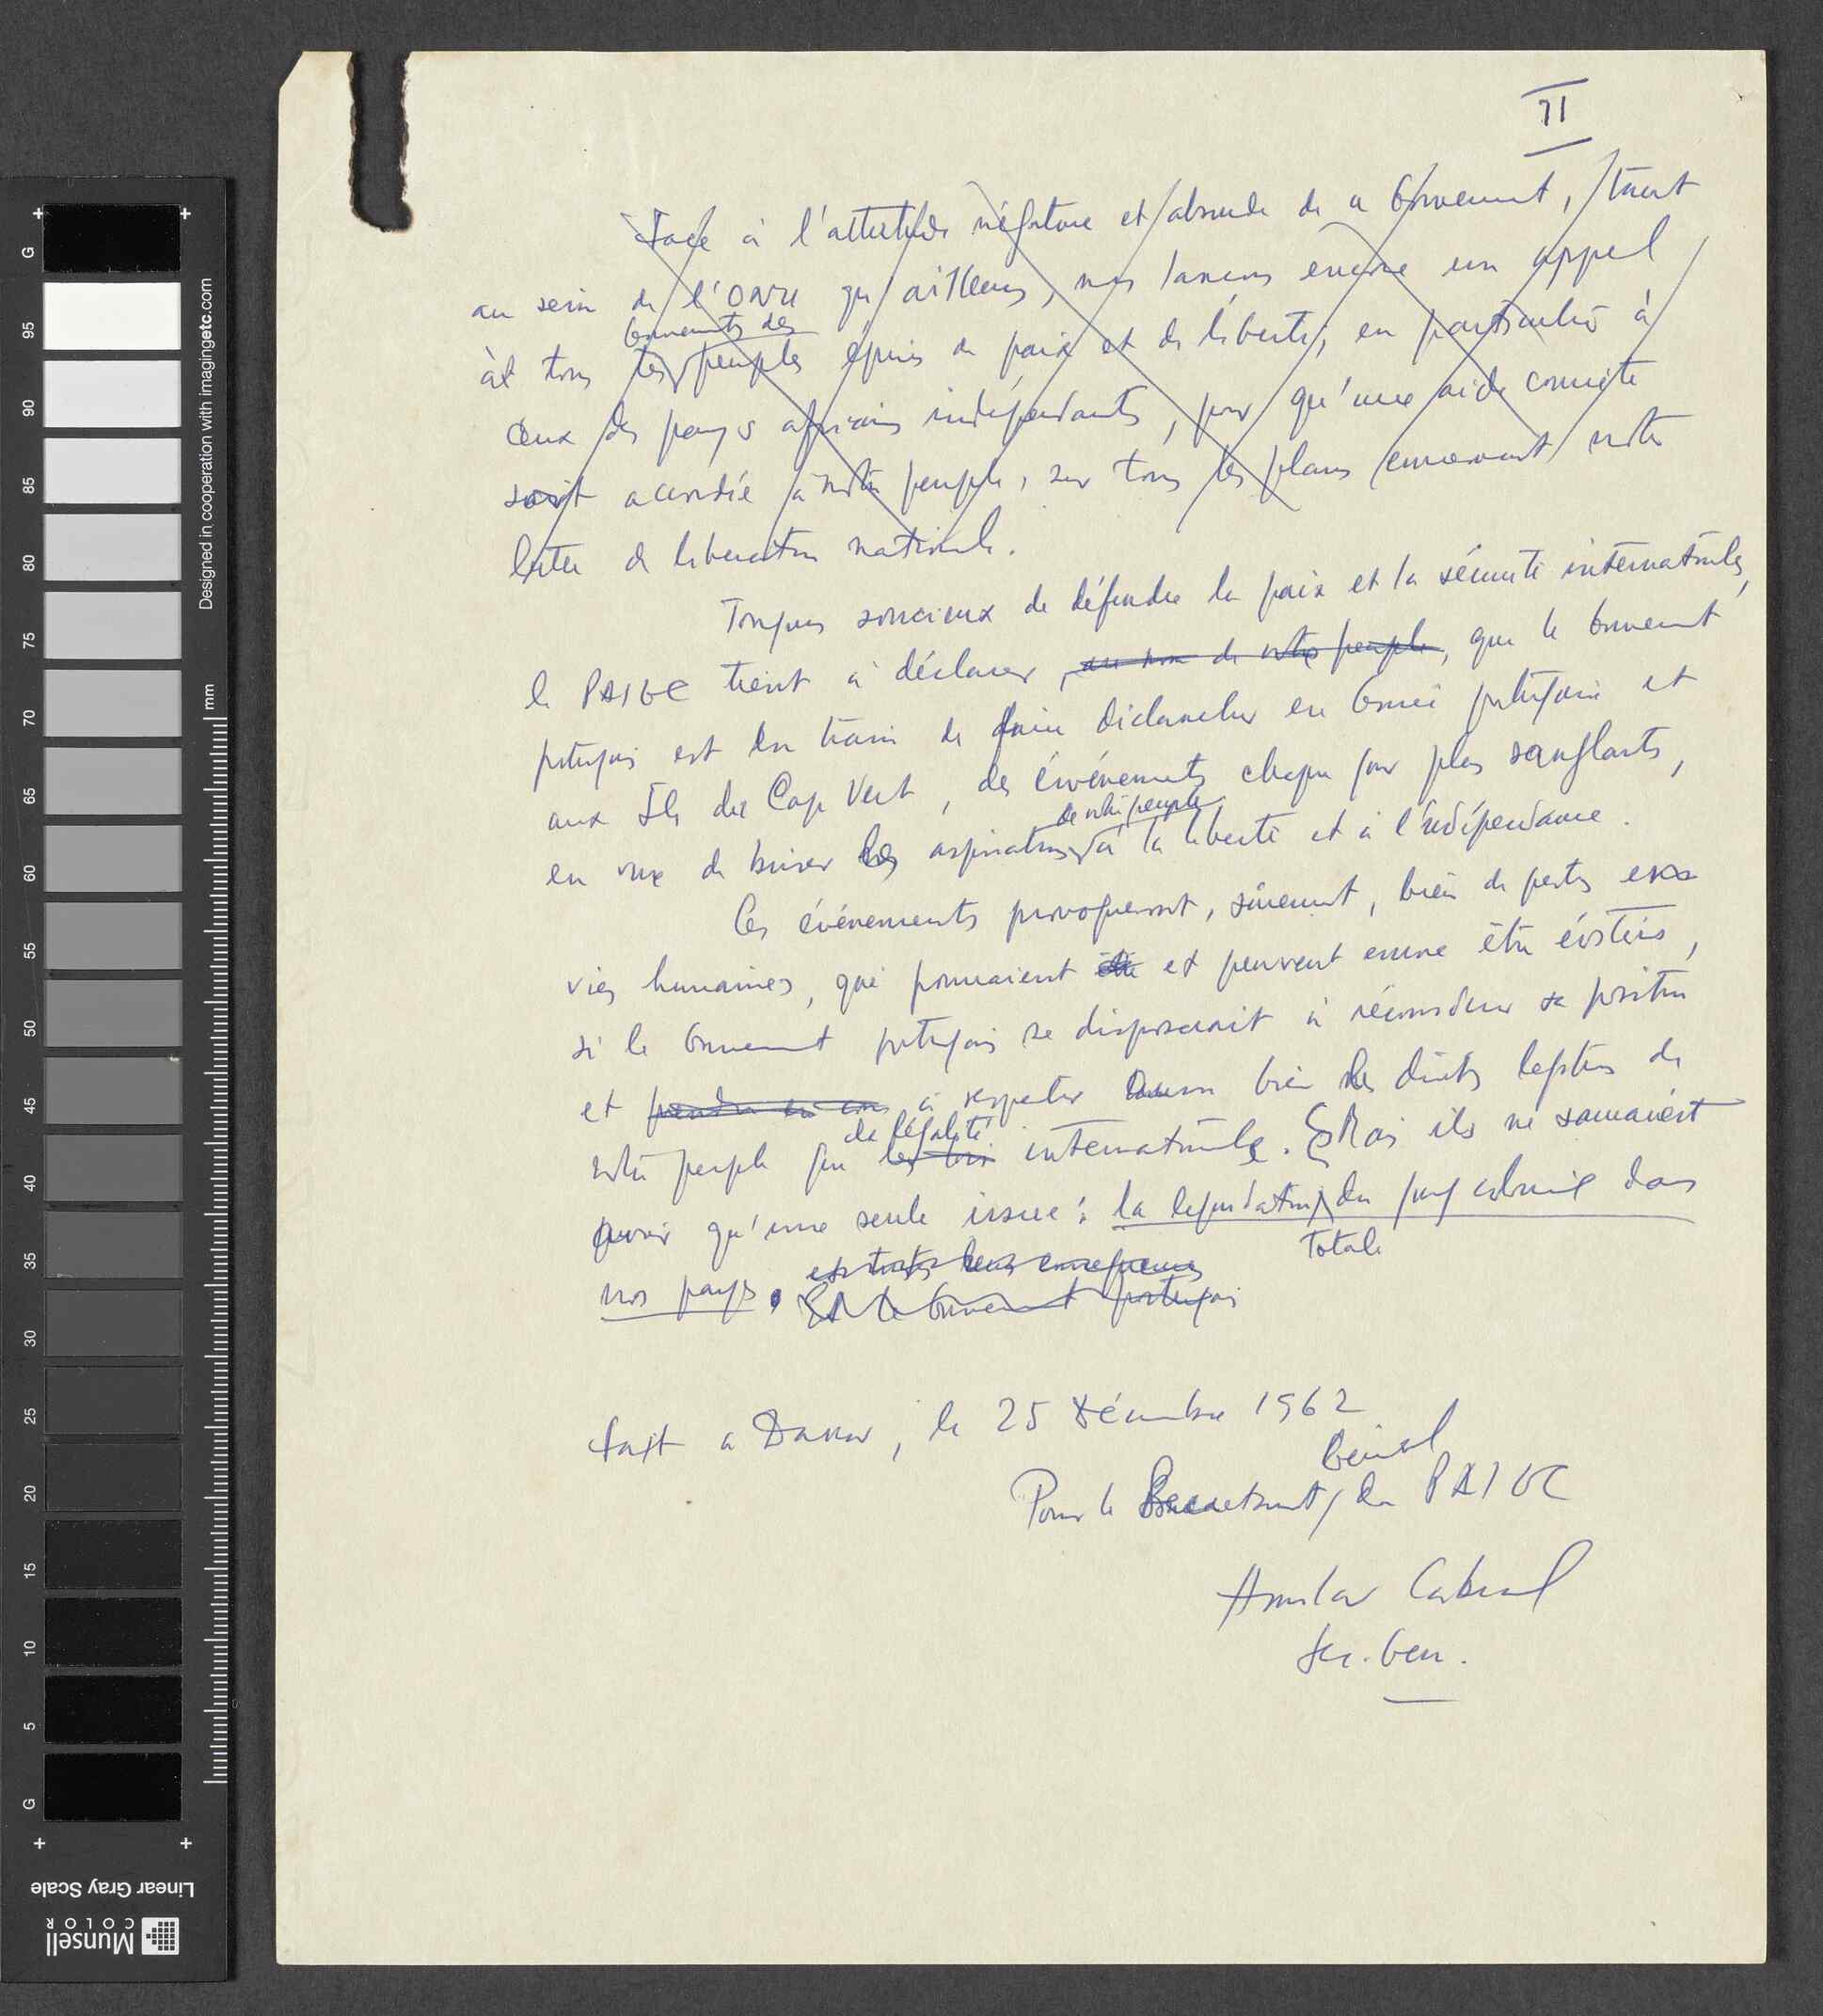 II
Face à l'attitude négative et absurde de ce Gouvernement, tant
au sein de l'ONU qu'ailleurs, nous lançons encore un appel
Gouvernements des
à tous les peuples épris de paix et de liberté, en particulier à
ceux des pays africains indépendants, pour qu'une aide concrète
soit accordée à notre peuple, sur tous les plans concernant notre
lutte de libération nationale.
Toujours soucieux de défendre la paix et la sécurité internationales,
le PAIGC tient à déclarer, au nom de notre peuple, que le Gouvernement
portugais est en train de faire déclancher en Guinée portugaise et
aux Iles du Cap Vert, des événements chaque jour plus sanglants,
de notre peuple
en vue de briser les aspirations à la liberté et à l'indépendance.
Ces événements provoqueront, sûrement, bien de pertes en
vies humaines, qui pouvaient et peuvent encore être évitées,
si le Gouvernement portugais se disposerait à réconsiderer sa position
et à respecter aussi bien les droits légitimes de
la légalité
notre peuple que les lois internationale. Mais ils ne sauraient
avoir qu'une seule issue: la liquidation du joug colonial dans
totale
nos pays. Et le Gouvernement portugais
Fait a Dakar, le 25 Décembre 1962
Général
Pour le Secretariat du PAIGC
Amilcar Cabral
Sec. Gen.
Designed in cooperation with imagingetc.com
mm
G
95
90
85
80
75
70
65
60
55
50
45
40
35
30
25
20
15
10
5
G
Linear Gray Scale
Munsell
COLOR